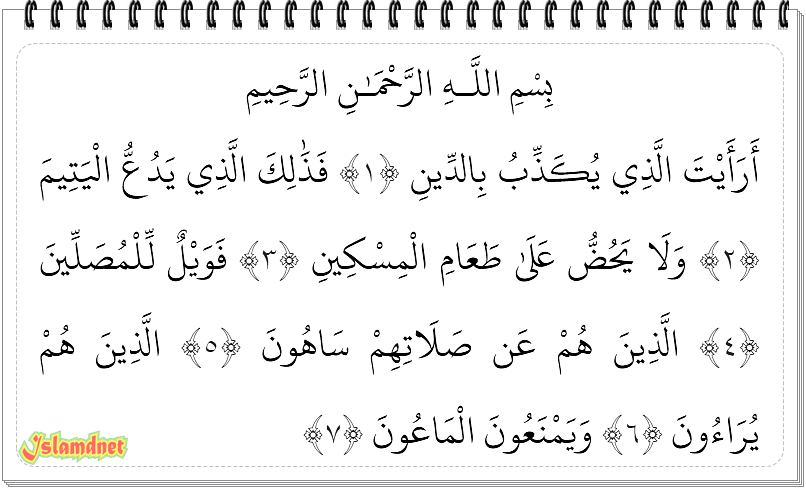 بِسْمِ اللَّـهِ الرَّحْمَـٰنِ الرَّحِيمِ
أَرَأَيْتَ الَّذِي يُكَذِّبُ بِالدِّينِ ﴿١﴾ فَذَٰلِكَ الَّذِي يَدُعُّ الْيَتِيمَ
﴿٢﴾ وَلَا يَحُضُّ عَلَىٰ طَعَامِ الْمِسْكِينِ ﴿٣﴾ فَوَيْلٌ لِّلْمُصَلِّينَ
﴿٤﴾ الَّذِينَ هُمْ عَن صَلَاتِهِمْ سَاهُونَ ﴿٥﴾ الَّذِينَ هُمْ
يُرَاءُونَ ﴿٦﴾ وَيَمْنَعُونَ الْمَاعُونَ ﴿٧﴾
Islamdnet